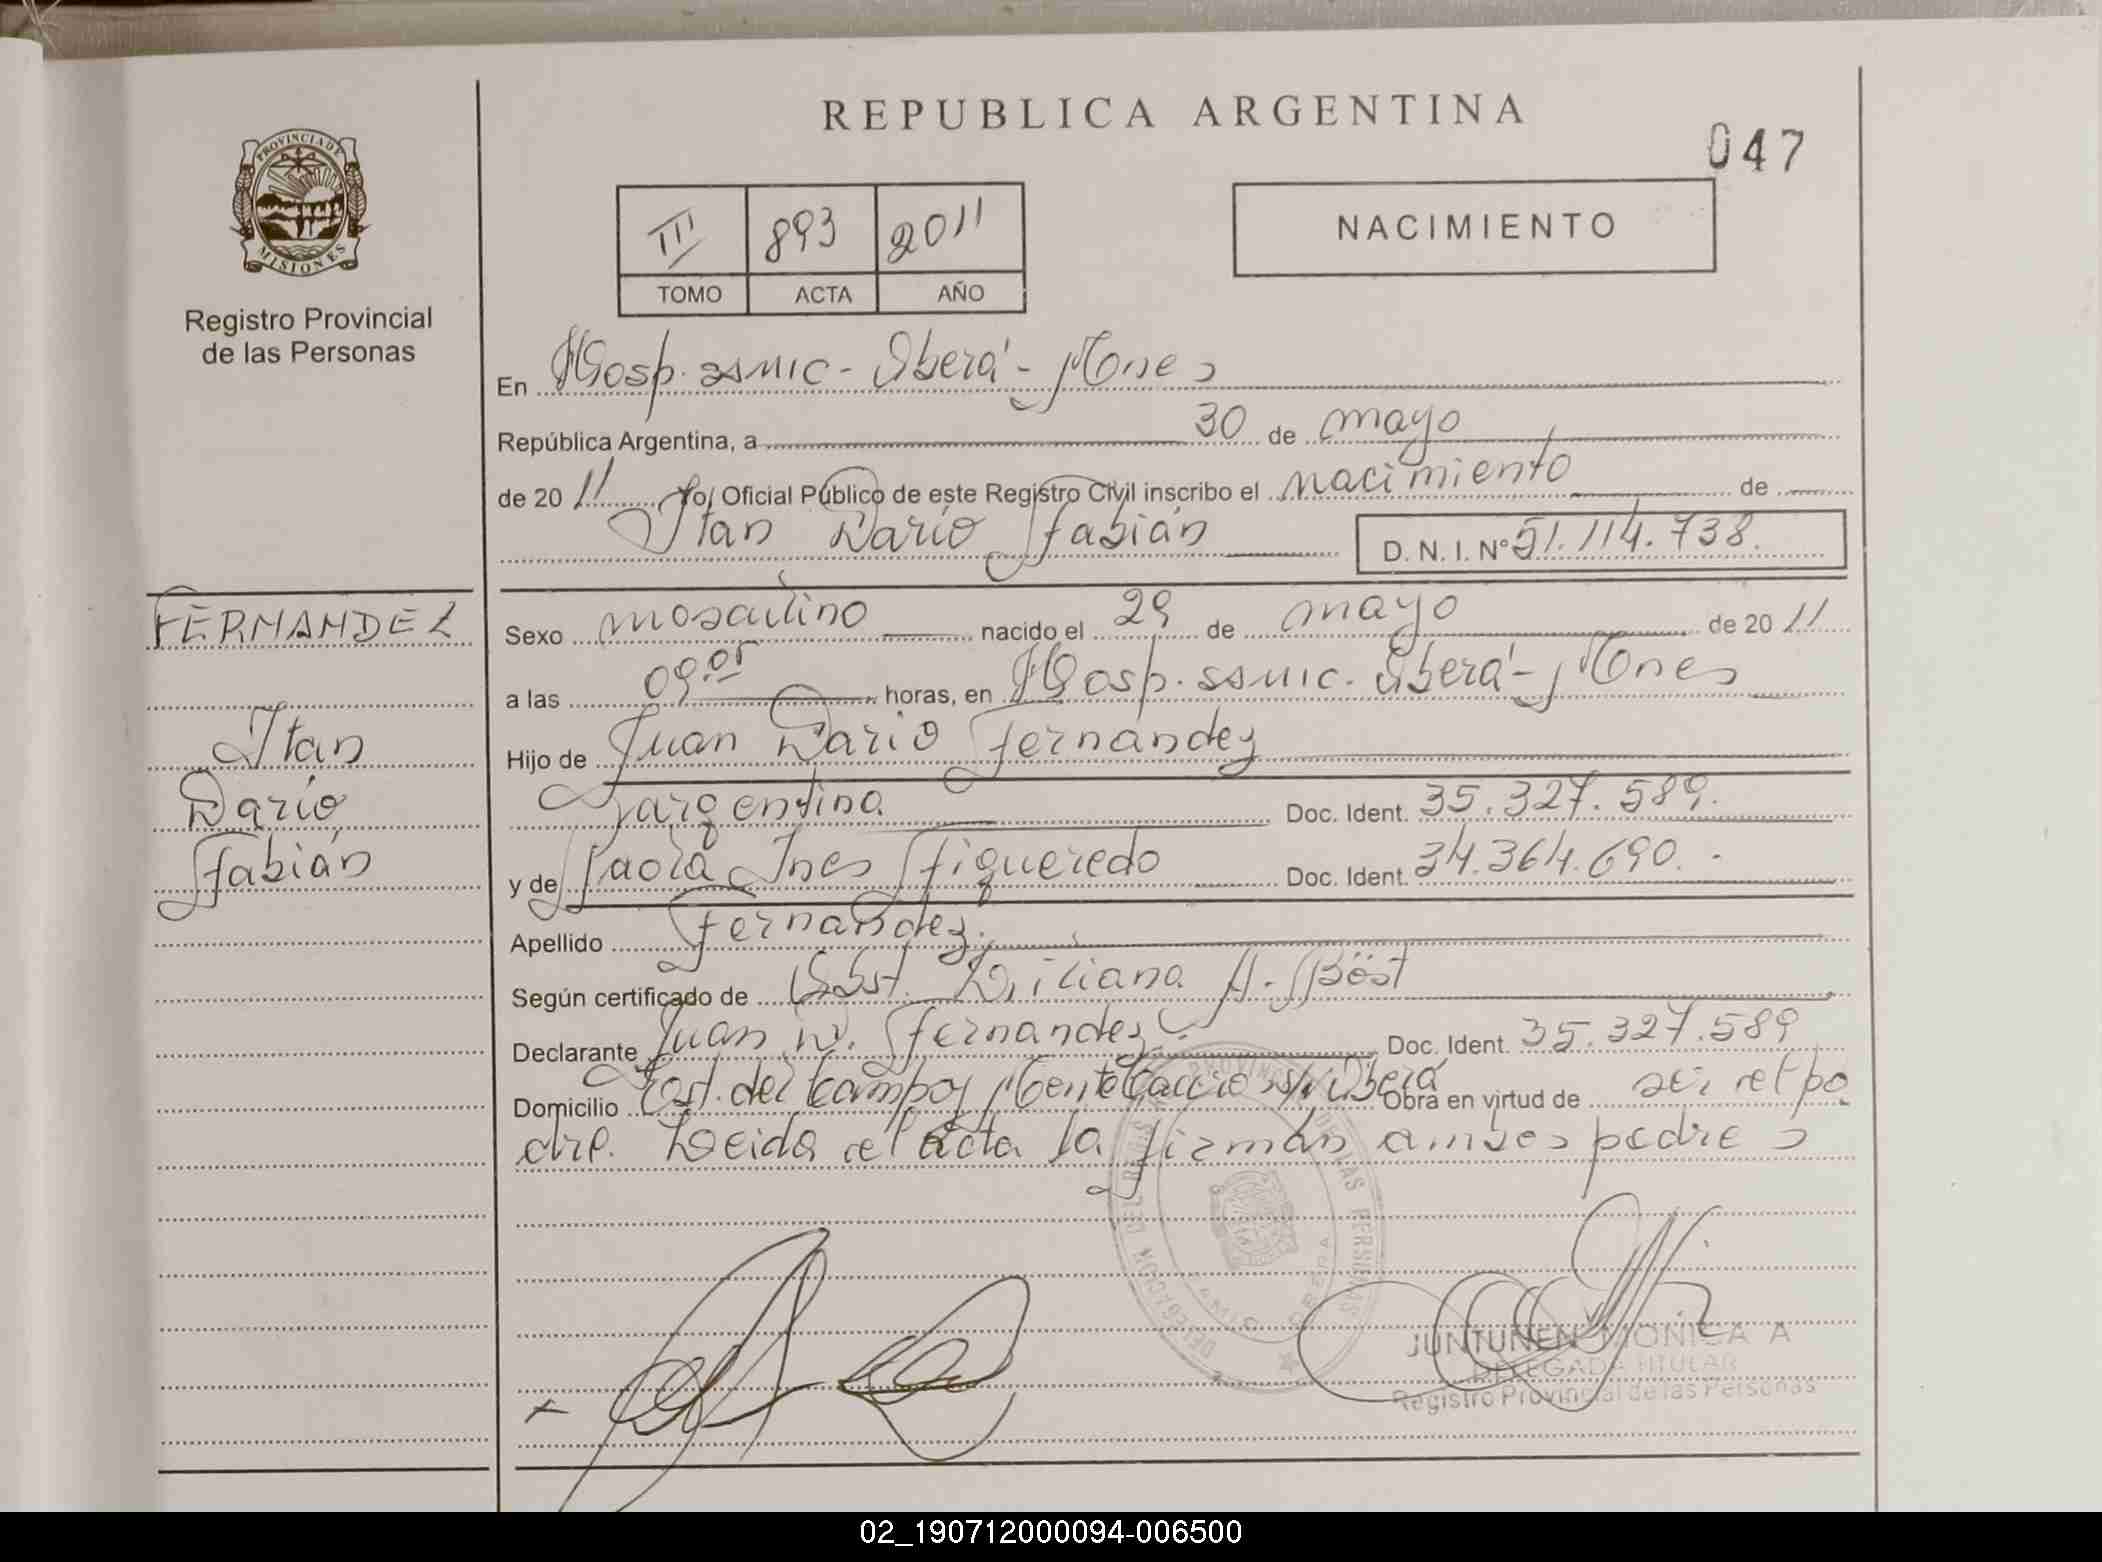 REPUBLICA ARGENTINA
047
PROVINCIA DE
MISIONES
Registro Provincial
de las Personas
III 893 2011
TOMO ACTA AÑO
NACIMIENTO
En Hosp. SAMIC - Oberá - Mones
República Argentina, a 30 de mayo
de 20 11 Yo, Oficial Público de este Registro Civil inscribo el nacimiento de
Itan Darío Fabián D. N. I. N° 51.114.738.
FERNANDEZ
Itan
Darío
Fabián
Sexo masculino nacido el 29 de mayo de 20 11
a las 09.05 horas, en Hosp. SAMIC. Oberá - Mones
Hijo de Juan Dario Fernandez
argentina Doc. Ident. 35.327.589.
y de Paola Ines Figueredo Doc. Ident. 34.364.690.-
Apellido Fernandez.
Según certificado de Obst. Liliana A. Böst
Declarante Juan D. Fernandez.- Doc. Ident. 35.327.589
Domicilio del Campo y s/n Oberá Obra en virtud de ser el pa
dre. Leida el acta la firman ambos padres
DELEGACION DEL PROVINCIAL DE LAS PERSONAS
OBERA
JUNTUNEN MONICA A
DELEGADA TITULAR
Registro Provincial de las Personas
02_190712000094-006500